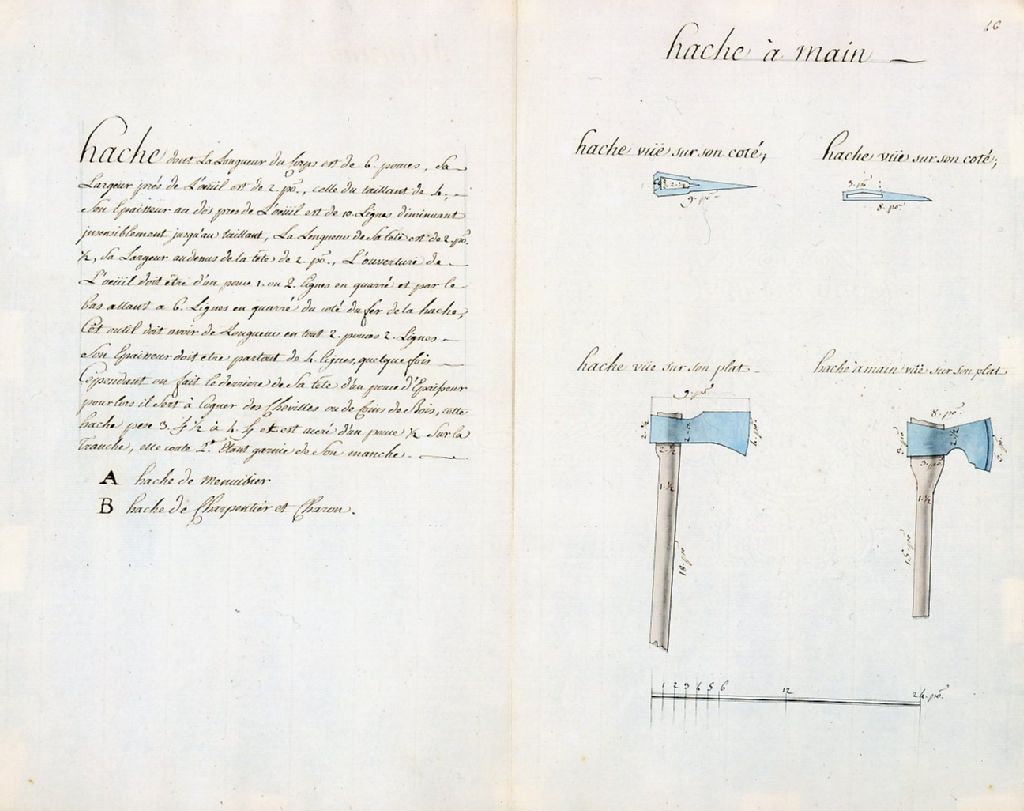 hache dont La Longueur du Corps est de 6. pouces, Sa
Largeur près de L'oeüil est de 2. po., celle du taillant de 4.,
Son Epaisseur au dos près de L'oeüil est de 10. Lignes diminuant
insensiblement jusqu'au taillant, La Longueur de Sa tête est de 2. po.
½, Sa Largeur audessus de la tête de 2. po., L'ouverture de
L'oeüil doit être d'un pouce 1. ou 2. lignes en quarré et par le
Bas allant a 6. Lignes en quarré du coté du fer de la hache,
Cet outil doit avoir de Longueur en tout 2. pouces 2. Lignes
Son Epaisseur doit etre partout de 4. lignes, quelque fois
Cependant on fait le derriere de Sa tête d'un pouce d'Epaisseur
pour lors il Sert à Cogner des Chevilles ou de Coins de Bois, cette
hache pese 3 ½ à 4 et est aceré d'un pouce ½ Sur la
Tranche, elle coute Etant garnie de Son manche.
A hache de Menuisier
B hache de Charpentier et Charon.
16
hache à main
hache vüe sur son coté;
hache vüe sur son coté;
2 ½
9. po.
3. po.
8. po.
hache vüe sur son plat
hache à main vüe sur son plat
9. po.
1 ½
18. po.
8. po.
2 ½
3. po.
1 ½
15. po.
1 2 3 4 5 6 12 24. po.